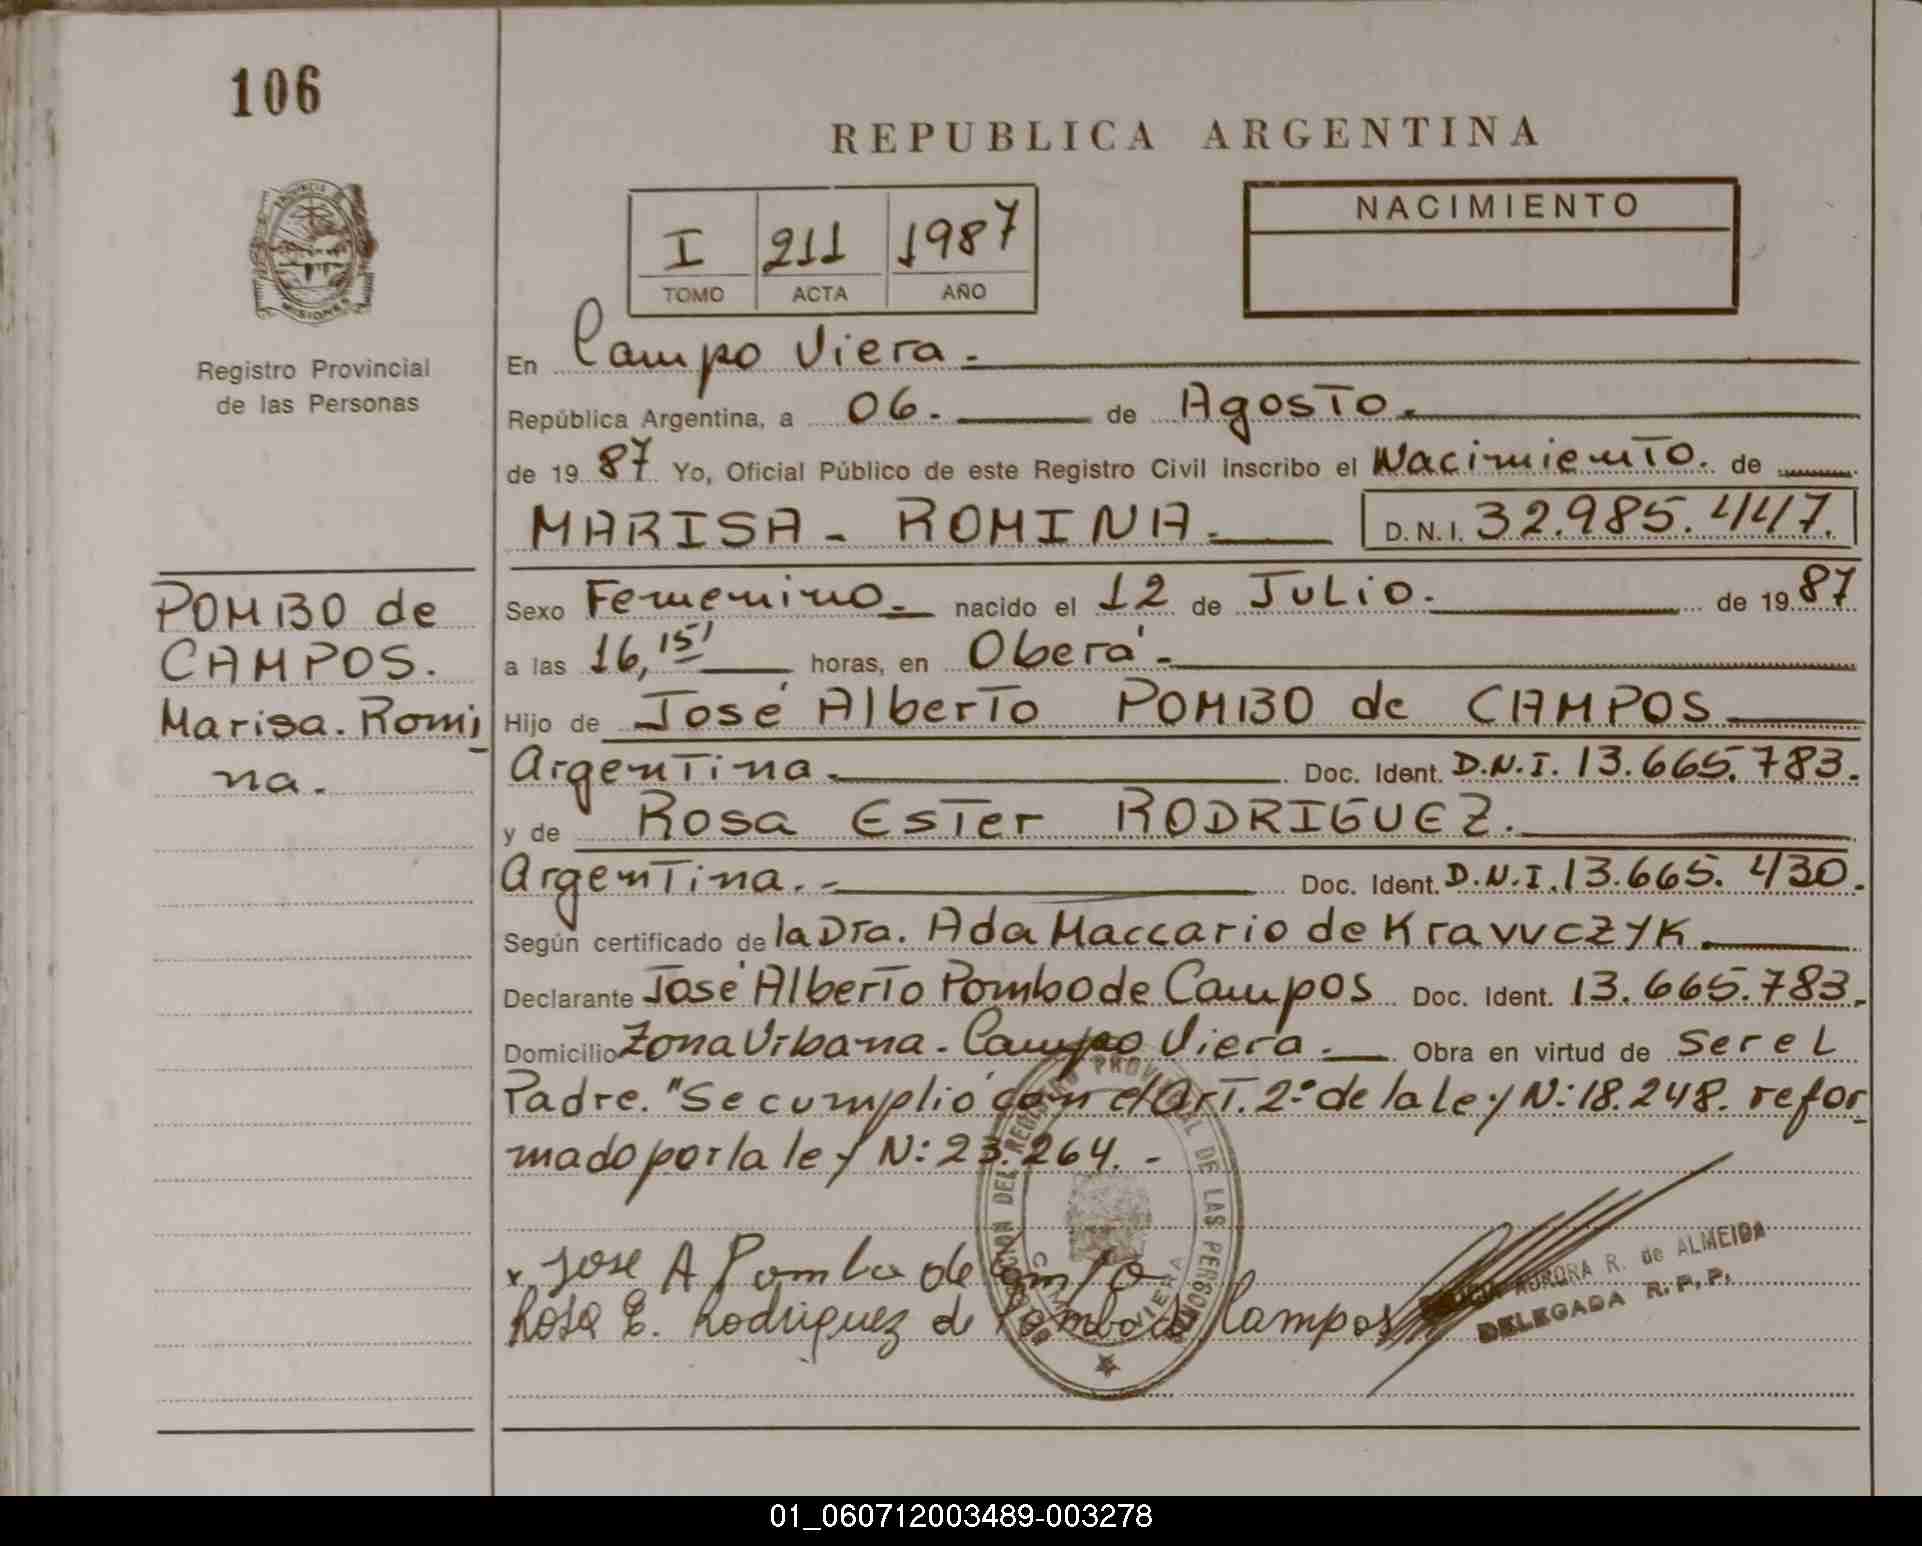 106
PROVINCIA DE
MISIONES
Registro Provincial
de las Personas
POMBO de
CAMPOS.
Marisa. Romi
na.
REPUBLICA ARGENTINA
I 211 1987
TOMO ACTA AÑO
NACIMIENTO
En Campo Viera.
República Argentina, a 06. de Agosto.
de 19 87 Yo, Oficial Público de este Registro Civil inscribo el Nacimiento. de
MARISA - ROMINA. D.N.I. 32.985.447.
Sexo Femenino. nacido el 12 de Julio. de 19 87
a las 16,15' horas, en Oberá.
Hijo de José Alberto POMBO de CAMPOS
Argentina. Doc. Ident. D.N.I. 13.665.783.
y de Rosa Ester RODRIGUEZ.
Argentina. - Doc. Ident. D.N.I. 13.665.430.
Según certificado de la Dra. Ada Maccario de Kravvczyk.
Declarante José Alberto Pombo de Campos Doc. Ident. 13.665.783.
Domicilio Zona Urbana - Campo Viera. Obra en virtud de ser el
Padre. "Se cumplió con el Art. 2º de la ley N: 18.248. refor
mado por la ley N: 23.264. -
DEL REGISTRO PROVINCIAL DE LAS PERSONAS
VIERA
Jose A Pombo de Campo
Rosa E. Rodriguez de Pombo de Campos
AURORA R. de ALMEIDA
DELEGADA R.P.P.
01_060712003489-003278